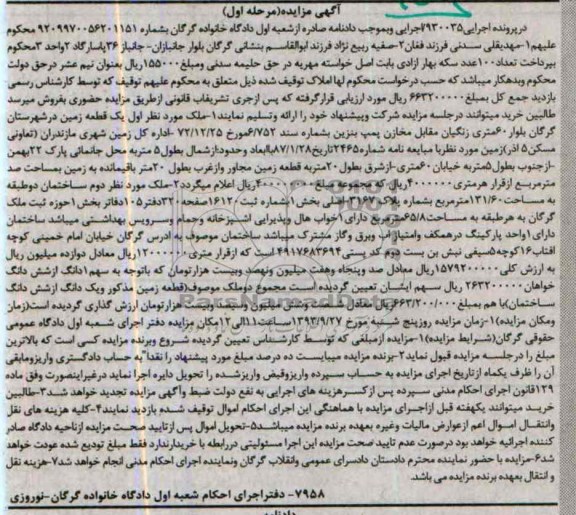 آگهی مزایده(مرحله اول)
درپرونده اجرایی۹۳۰۰۳۵/اجرایی وبموجب دادنامه صادره ازشعبه اول دادگاه خانواده گرگان بشماره ۹۲۰۹۹۷۰۰۵۶۲۰۱۱۵۱ محکوم
علیهم۱-مهدیقلی سدنی فرزند فغان۲-صفیه ربیع نژاد فرزند ابوالقاسم بنشانی گرگان بلوار جانبازان- جانباز۳۶پاسارگاد۲واحد۳محکوم
بپرداخت تعداد۱۰۰عدد سکه بهار ازادی بابت اصل خواسته مهریه در حق حلیمه سدنی ومبلغ۱۵۵۰۰۰ریال بعنوان نیم عشر درحق دولت
محکوم وبدهکار میباشد که حسب درخواست محکوم لها املاک توقیف شده ذیل متعلق به محکوم علیهم توقیف که توسط کارشناس رسمی
بازدید جمع کل بمبلغ۶۶۳۲۰۰۰۰۰ ریال مورد ارزیابی قرارگرفته که پس ازجری تشریفات قانونی ازطریق مزایده حضوری بفروش میرسد
طالبین خرید میتوانند درجلسه مزایده شرکت وپیشنهاد خود را ارائه وتسلیم نمایند۱-ملک مورد نظر اول یک قطعه زمین درشهرستان
گرگان بلوار۶۰متری زنگیان مقابل مخازن پمپ بنزین بشماره سند ۶/۷۵۲مورخ ۷۲/۱۲/۲۵ -اداره کل زمین شهری مازندران (تعاونی
مسکن۵ اذر)زمین مورد نظربا مبایعه نامه شماره۲۴۶۵تاریخ۸۷/۱/۲۸باابعاد وحدود:ازشمال بطول۵ متربه محل جانمائی پارک ۲۲بهمن
-ازجنوب بطول۵متربه خیابان ۶۰متری-ازشرق بطول ۲۰متربه قطعه زمین مجاور وازغرب بطول ۲۰متر باقیمانده به زمین بمساحت صد
مترمربع ازقرار هرمتری۴۰۰۰۰۰۰ریال که مجموعه مبلغ ۴۰۰۰۰۰۰۰۰ریال اعلام میگردد۲-ملک مورد نظر دوم ساختمان دوطبقه
به مساحت۱۳۱/۶۰مترمربع بشماره پلاک اصلی بخش۱بشماره ثبت ۱۶۱۲۰صفحه ۳۲دفتر۱۰۵دفاتر بخش۱حوزه ثبت ملک
گرگان به هرطبقه به مساحت۶۵/۸مترمربع دارای ۱خواب هال وپذیرایی اشپزخانه وحمام وسرویس بهداشتی میباشد ساختمان
دارای۱واحد پارکینگ درهمکف وامتیاز اب وبرق وگاز مشترک میباشد ساختمان موصوف به ادرس گرگان خیابان امام خمینی کوچه
افتاب۱۶کوچه۵سیفی نبش بن بست دوم کد پستی۴۹۱۷۶۸۳۶۹۴ است که ازقرار متری ۱۲۰۰۰۰۰۰ریال معادل دوازده میلیون ریال
به ارزش کلی۱۵۷۹۲۰۰۰۰۰ریال معادل صد وپنجاه وهفت میلیون ونهصد وبیست هزارتومان که باتوجه به سهم۱دانگ ازشش دانگ
خواهان۲۶۳۲۰۰۰۰۰ ریال سهم ایشان تعیین گردیده است مجموع دوملک موصوف(قطعه زمین مذکور ویک دانگ ازشش دانگ
ساختمان)با هم بمبلغ ۶۶۳/۲۰۰/۰۰۰ریال معادل شصت وشش میلیون وسیصد وبیست هزارتومان ارزش گذاری گردیده است(زمان
ومکان مزایده)۱-زمان مزایده روزپنج شنبه مورخ ۱۳۹۳/۹/۲۷ساعت۱۱الی۱۲مکان مزایده دفتر اجرای شعبه اول دادگاه عمومی
حقوقی گرگان(شرایط مزایده)۱-مزایده ازمبلغی که توسط کارشناس تعیین گردیده شروع وبرنده مزایده کسی است که بالاترین
مبلغ را درجلسه مزایده قبول نماید۲-برنده مزایده میبایست ده درصد مبلغ مورد پیشنهاد را نقدا"به حساب دادگستری واریزومابقی
آن را ظرف یکماه ازتاریخ اجرای مزایده به حساب سپرده واریزوقبض واریزشده را تحویل دایره اجرا نماید درغیراینصورت وفق ماده
۱۲۹قانون اجرای احکام مدنی سپرده پس ازکسرهزینه های اجرایی به نفع دولت ضبط وآگهی مزایده تجدید خواهد شد۳-طالبین
خرید میتوانند یکهفته قبل ازاجرای مزایده با هماهنگی این اجرای احکام اموال توقیف شده بازدید نمایند۴-کلیه هزینه های نقل
وانتقال اموال اعم ازعوارض مالیات وغیره بعهده برنده مزایده میباشد۵-تحویل اموال پس ازتایید صحت مزایده ازناحیه دادگاه صادر
کننده اجرائیه خواهد بود درصورت عدم تایید صحت مزایده این اجرا مسئولیتی دررابطه با خریدارندارد فقط مبلغ تودیع شده عودت خواهد
شد۶-مزایده با حضور نماینده محترم دادستان دادسرای عمومی وانقلاب گرگان ونماینده اجرای احکام مدنی انجام خواهد شد۷-هزینه نقل
و انتقال بعهده برنده مزایده می باشد.
۷۹۵۸- دفتراجرای احکام شعبه اول دادگاه خانواده گرگان-نوروزی